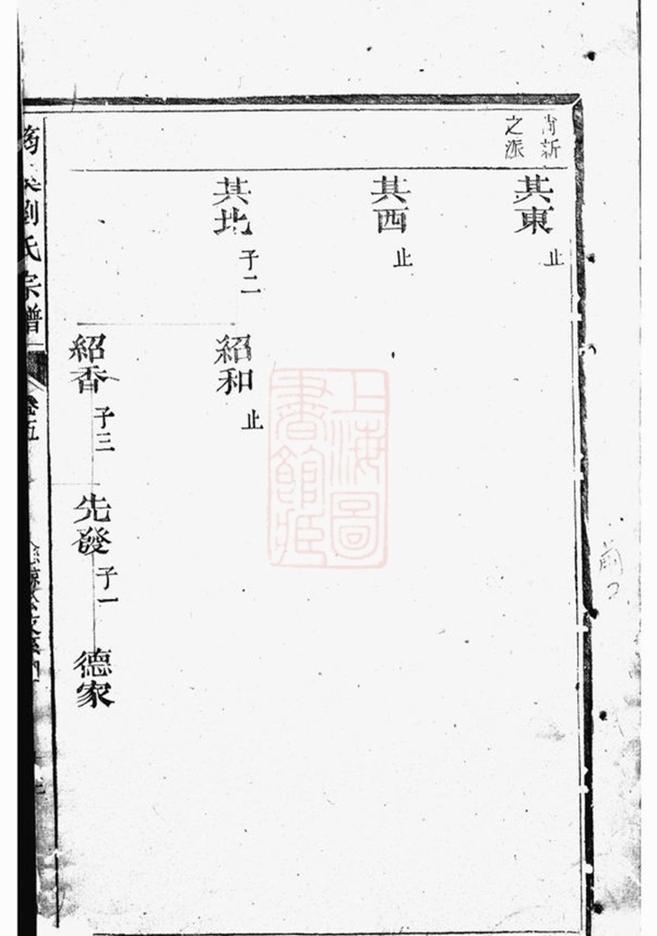 新
之派
其東 止
其西 止
其北 子二
紹和 止
紹香 子三
先發 子一
德家
劉氏宗譜
卷五
上海圖書館藏